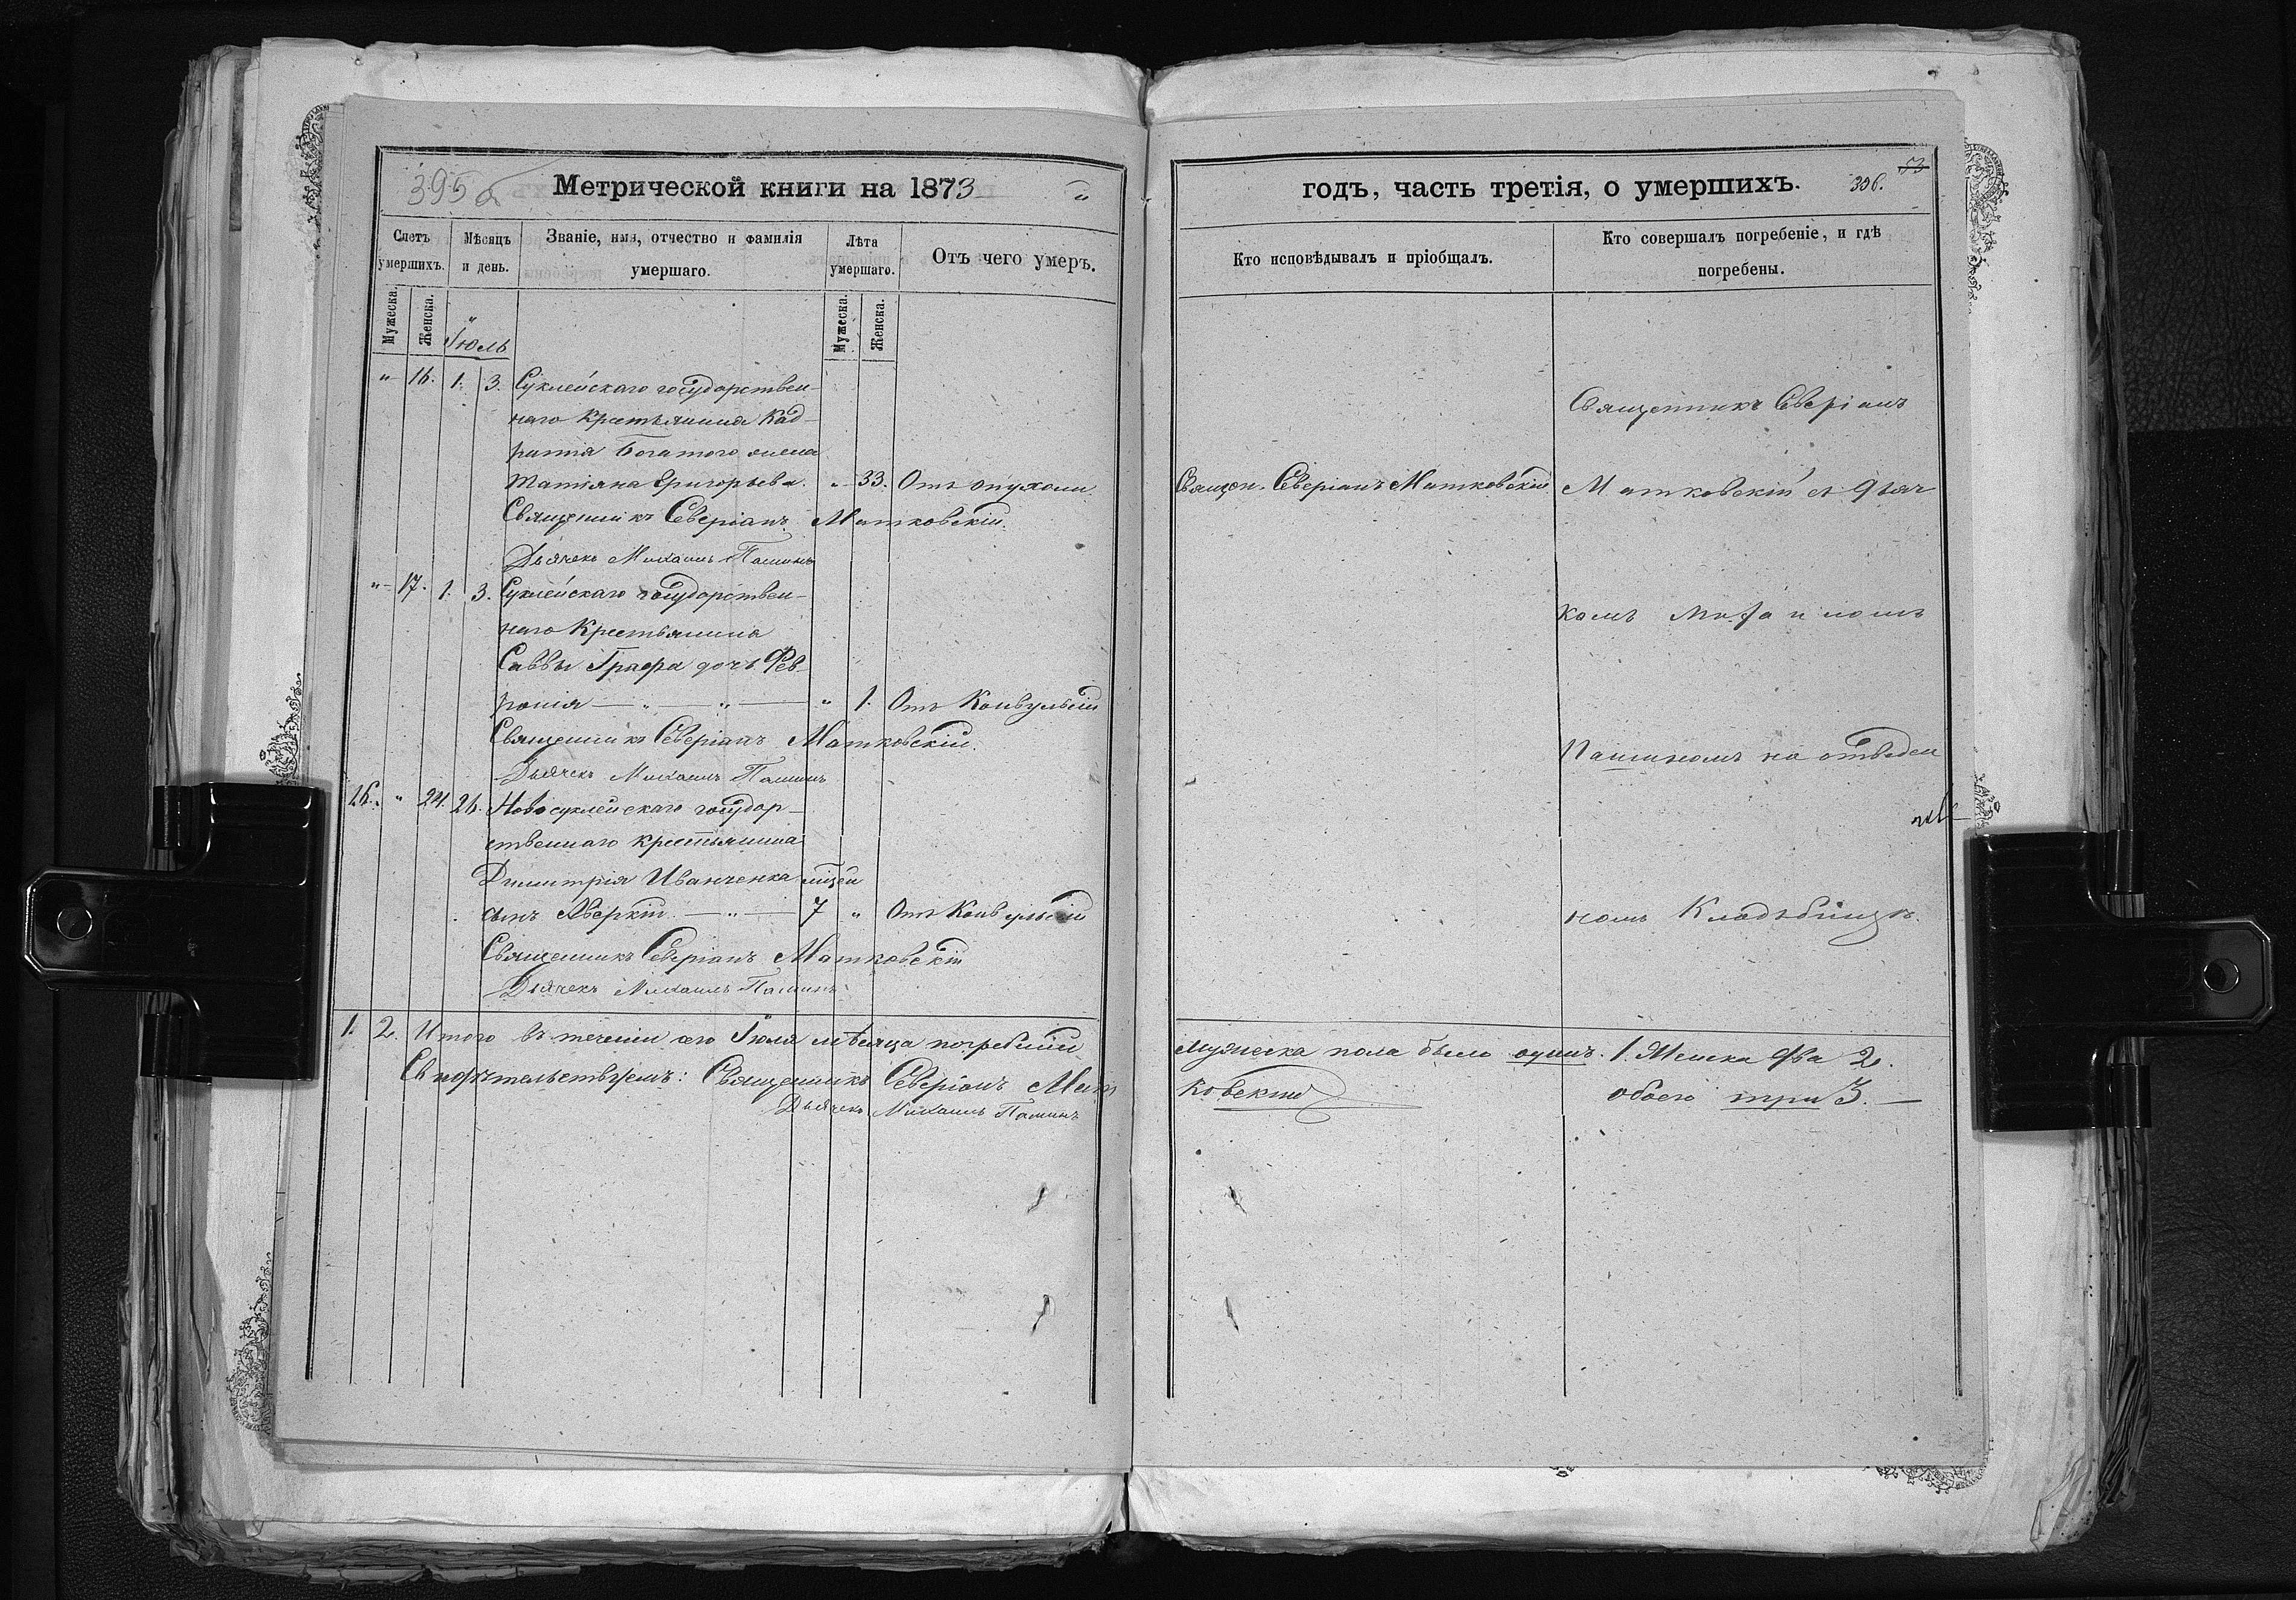 395
Метрической книги на 1873
Счетъ умершихъ.
Мѣсяцъ и день.
Званіе, имя, отчество и фамилія умершаго.
Лѣта умершаго.
Отъ чего умеръ.
Мужеска.
Женска.
Іюль
Мужеска.
Женска.
„ 16. 1. 3. Суклейскаго государствен-
наго Крестьянина Кад-
ратія Богатого жена
Татіяна Григорьева. „ 33. Отъ опухоли
Священникъ Северіанъ Матковскій.
Дьячекъ Михаилъ Пашинъ
„ 17. 1. 3. Суклейскаго государствен-
наго Крестьянина
Саввы Графа дочь Фев-
ронія — „ — „ — „ 1. Отъ Конвульсій
Священникъ Северіанъ Матковскій.
Дьячекъ Михаилъ Пашинъ
„ 24. 26. Новосуклейскаго государ-
ственнаго крестьянина
Димитрія Иванченка
сынъ Аверкій — „ — 7 „ Отъ Конвульсій
Священникъ Северіанъ Матковскій
Дьячекъ Михаилъ Пашинъ
1. 2. Итого въ теченіи сего Іюля мѣсяца погребеній
Свидѣтельствуемъ: Священникъ Северіанъ Мат
Дьячекъ Михаилъ Пашинъ
годъ, часть третія, о умершихъ.
306.
73
Кто исповѣдывалъ и пріобщалъ.
Кто совершалъ погребеніе, и гдѣ погребены.
Священникъ Северіанъ
Священ. Северіанъ Матковскій
Матковскій съ Дьяч
комъ Михаиломъ
Пашинымъ на отведен
номъ Кладьбищѣ.
мужеска пола было одинъ. 1. Женска два 2.
ковскій
обоего три 3. —